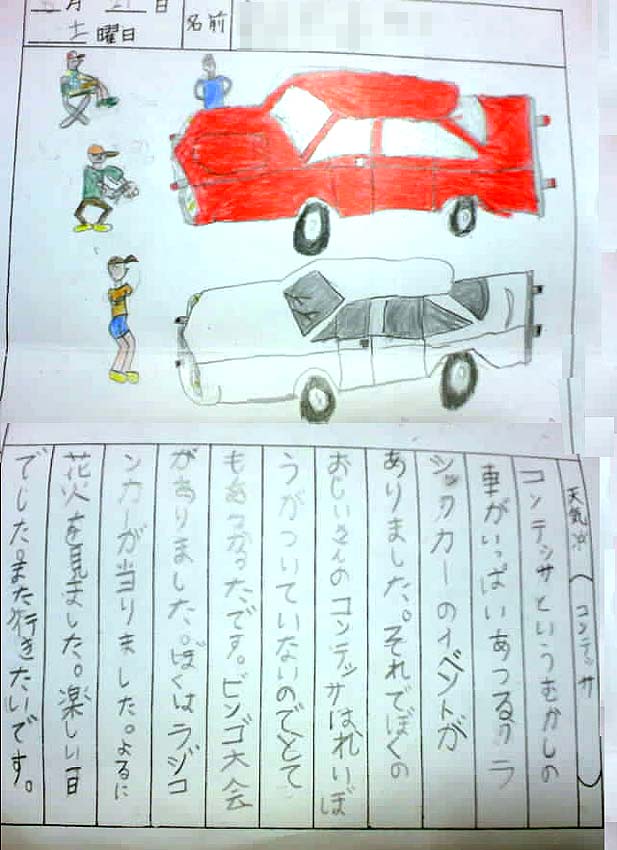 月 日
土曜日
名前
天気 ( コンテッサ )
コンテッサというむかしの
車がいっぱいあつるクラ
シックカーのイベントが
ありました。それでぼくの
おじいさんのコンテッサはれいぼ
うがついていないのでとて
もあつかったです。ビンゴ大会
がありました。ぼくはラジコ
ンカーが当りました。よるに
花火を見ました。楽しい一日
でした。また行きたいです。